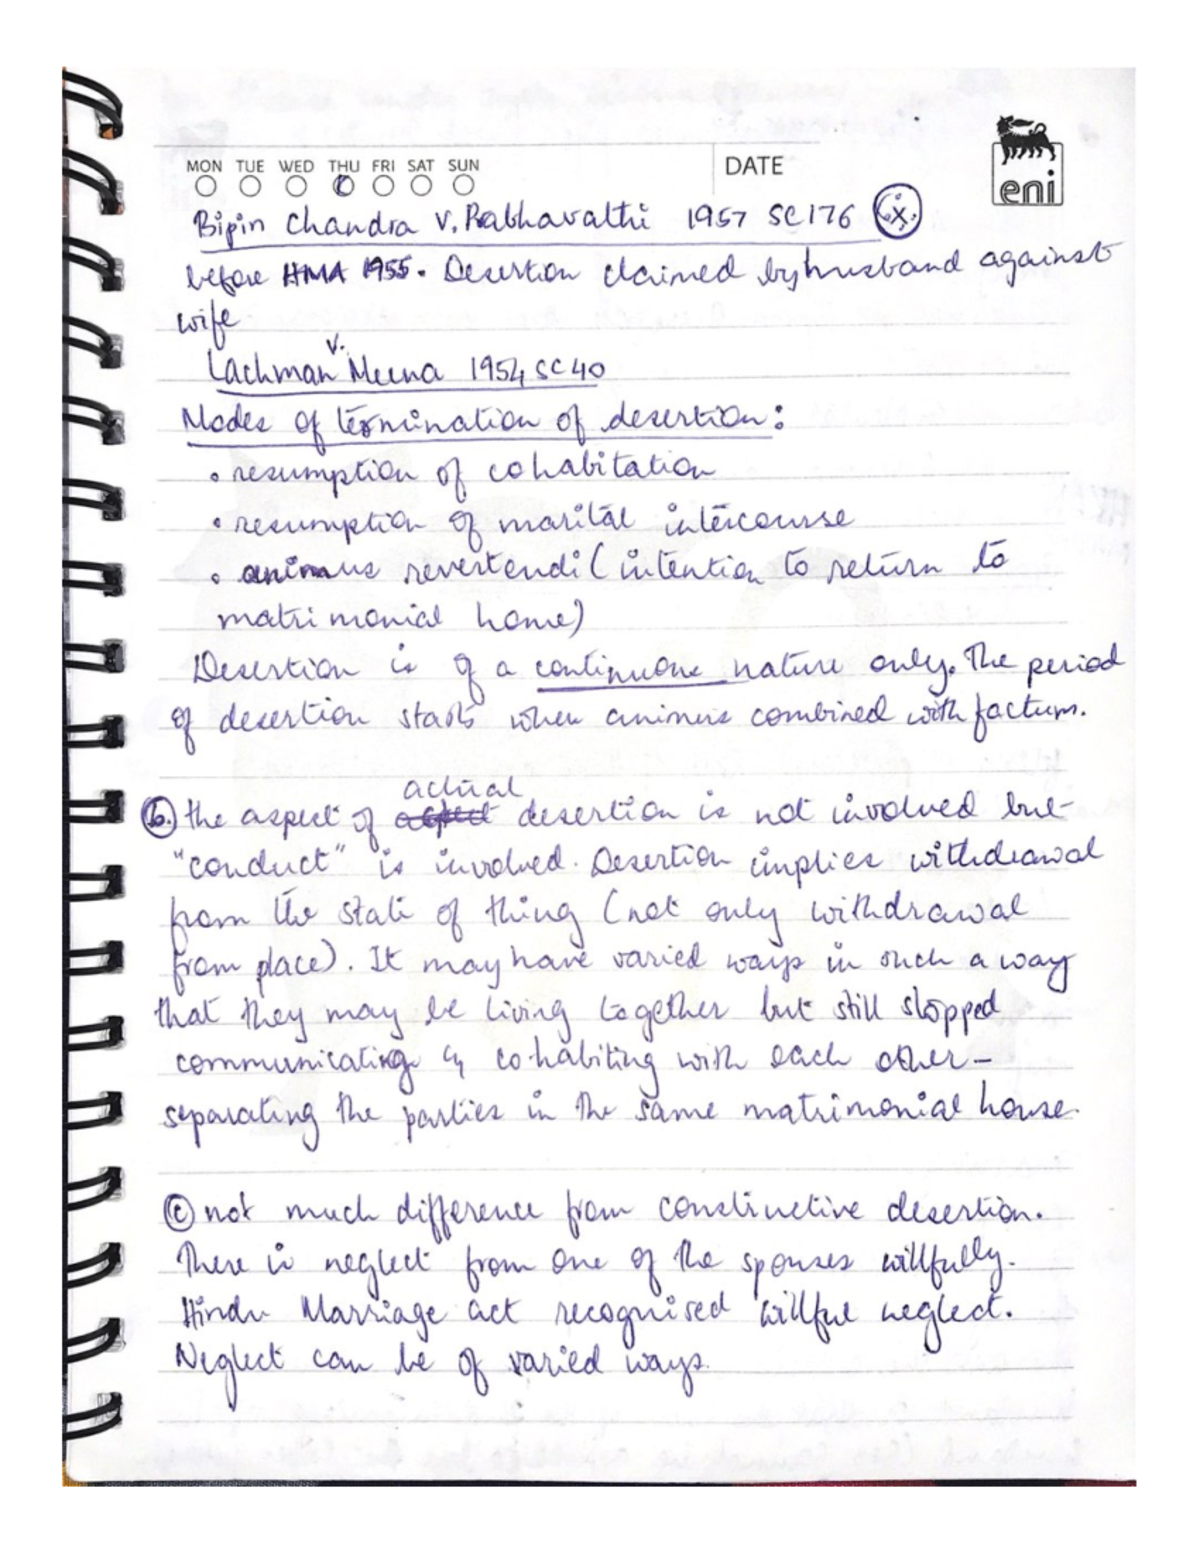 MON TUE WED THU FRI SAT SUN
DATE
eni
Bipin Chandra v. Prabhavathi 1957 SC 176
before HMA 1955. Desertion claimed by husband against
wife
Lachman v. Meena 1954 SC 40
Modes of termination of desertion:
• resumption of cohabitation
• resumption of marital intercourse
• animus revertendi (intention to return to
matrimonial home)
Desertion is of a continuous nature only. The period
of desertion starts when animus combined with factum.
b. the aspect of actual desertion is not involved but
"conduct" is involved. Desertion implies withdrawal
from the state of thing (not only withdrawal
from place). It may have varied ways in such a way
that they may be living together but still stopped
communicating & cohabiting with each other –
separating the parties in the same matrimonial house.
c not much difference from constructive desertion.
There is neglect from one of the spouses willfully.
Hindu Marriage act recognised willful neglect.
Neglect can be of varied ways.